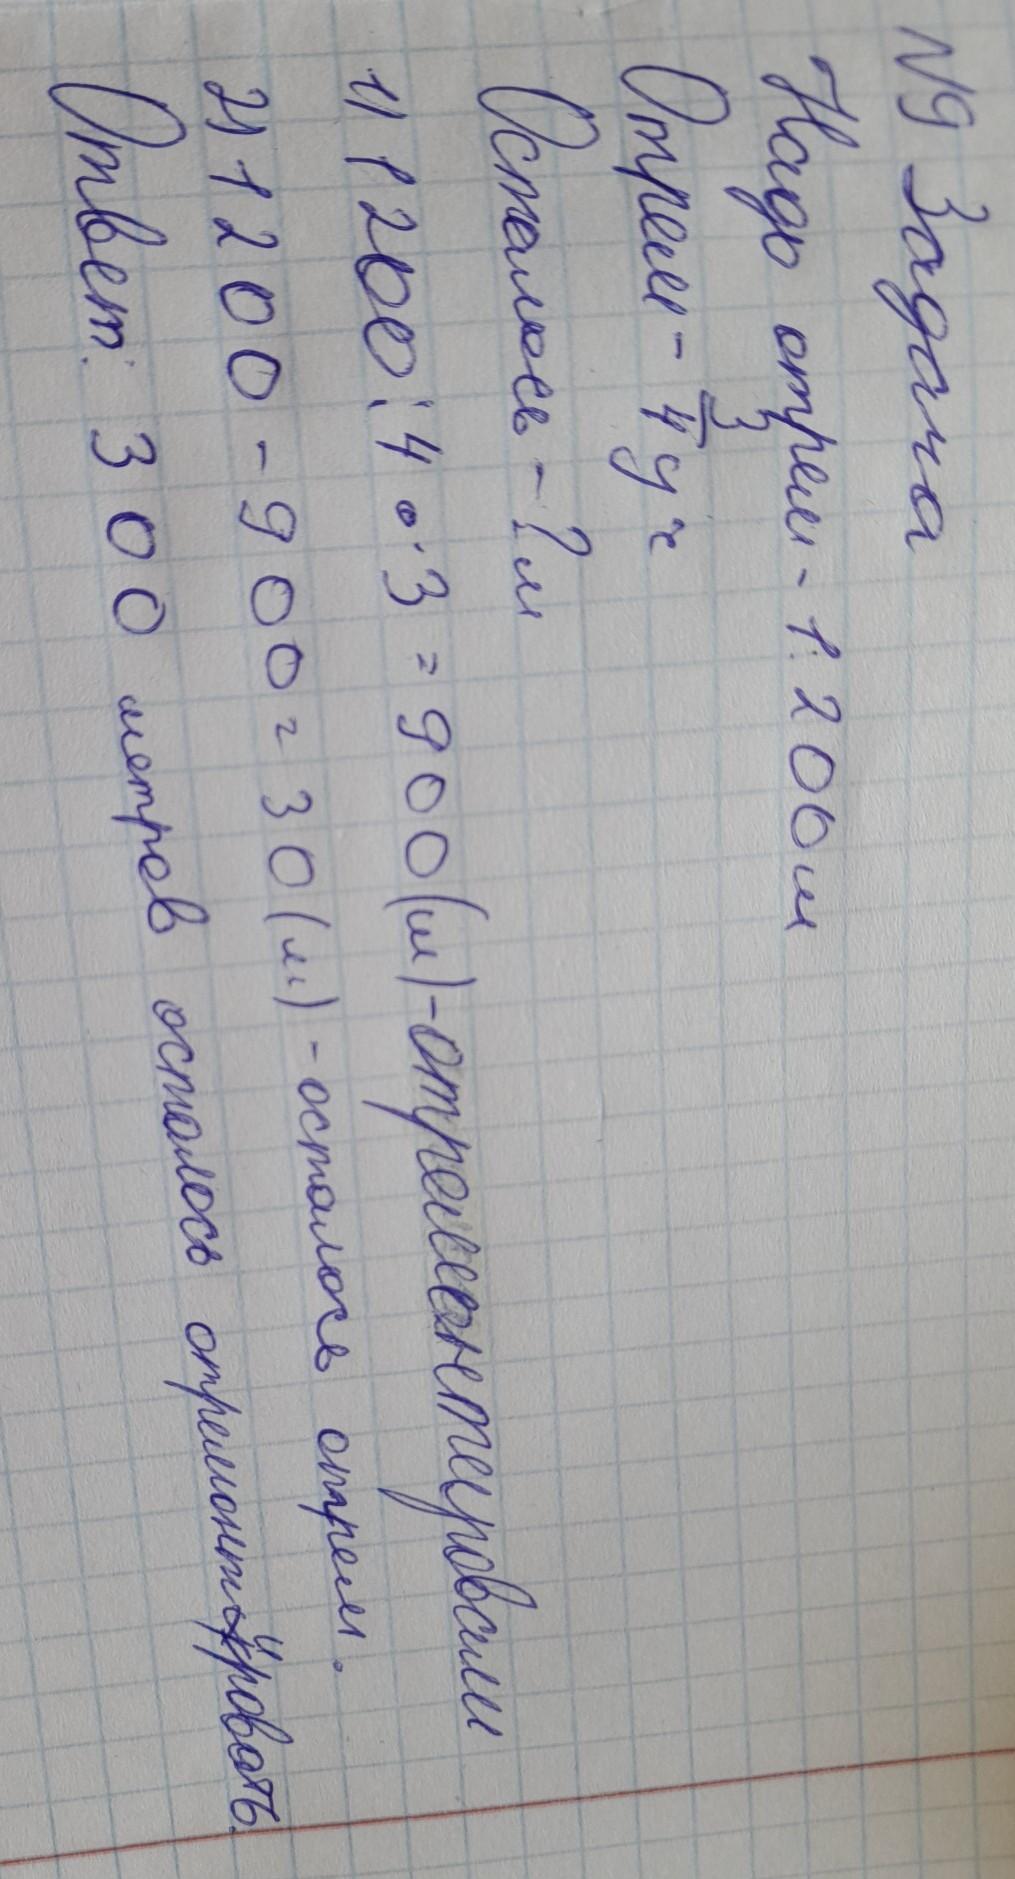 №9 Задача
Надо отрем - 1 200м
Отрем - 3/4 уч
Осталось - ? м
1) 1200 : 4 · 3 = 900(м) - отремонтировали
2) 1200 - 900 = 30(м) - осталось отрем.
Ответ: 300 метров осталось отремонтировать.